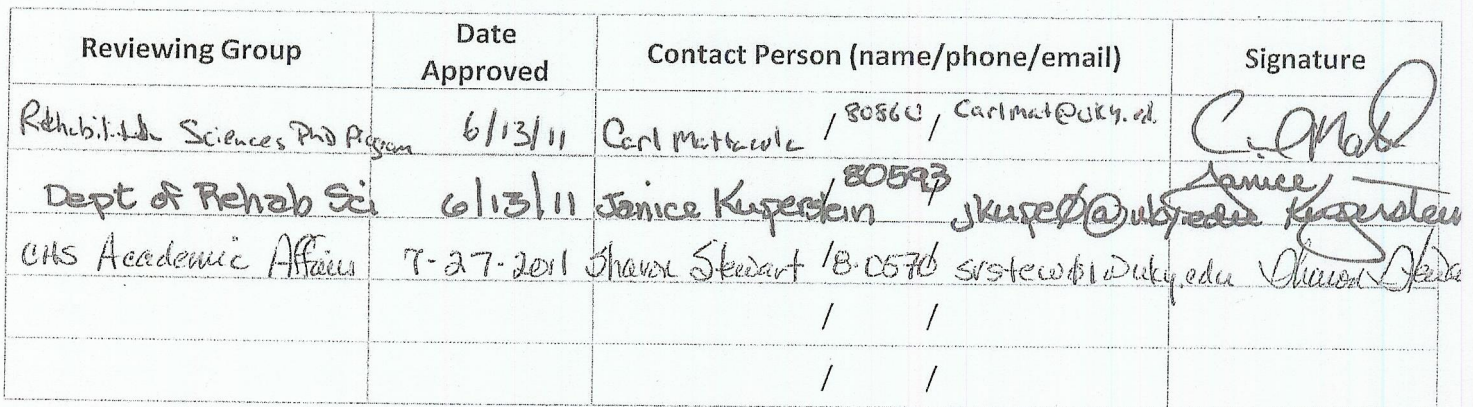 Reviewing Group Date Approved Contact Person (name/phone/email) Signature
Sciences PhD Program 6/13/11 Carl Mattacola / 80860 / Carlmat@uky.ed.
Dept of Rehab Sci 6/13/11 Janice Kuperstein / 80593 / jkupe0@uky.edu Janice Kuperstein
CHS Academic Affairs 7-27-2011 Sharon Stewart / 8-0570 / srstew01@uky.edu Sharon Stewa
/ /
/ /